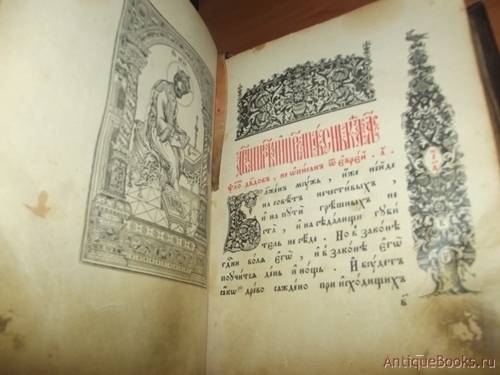 дв҃довъ, не ѿ еврей. а҃
лаженъ мꙋжъ, иже не иде
на совѣтъ нечестивыхъ
и на пути грѣшныхъ не
ста, и на сѣдалищи губи
тель не сѣде. Но в законѣ
гд҃ни волѧ єгѡ, и в законѣ єгѡ
поучитсѧ день и нощь. И бꙋдетъ
ꙗкѡ древо саждено при исходѧщихъ
AntiqueBooks.ru